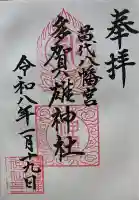 奉拝
富代八幡宮
多賀雄神社
令和八年一月十九日